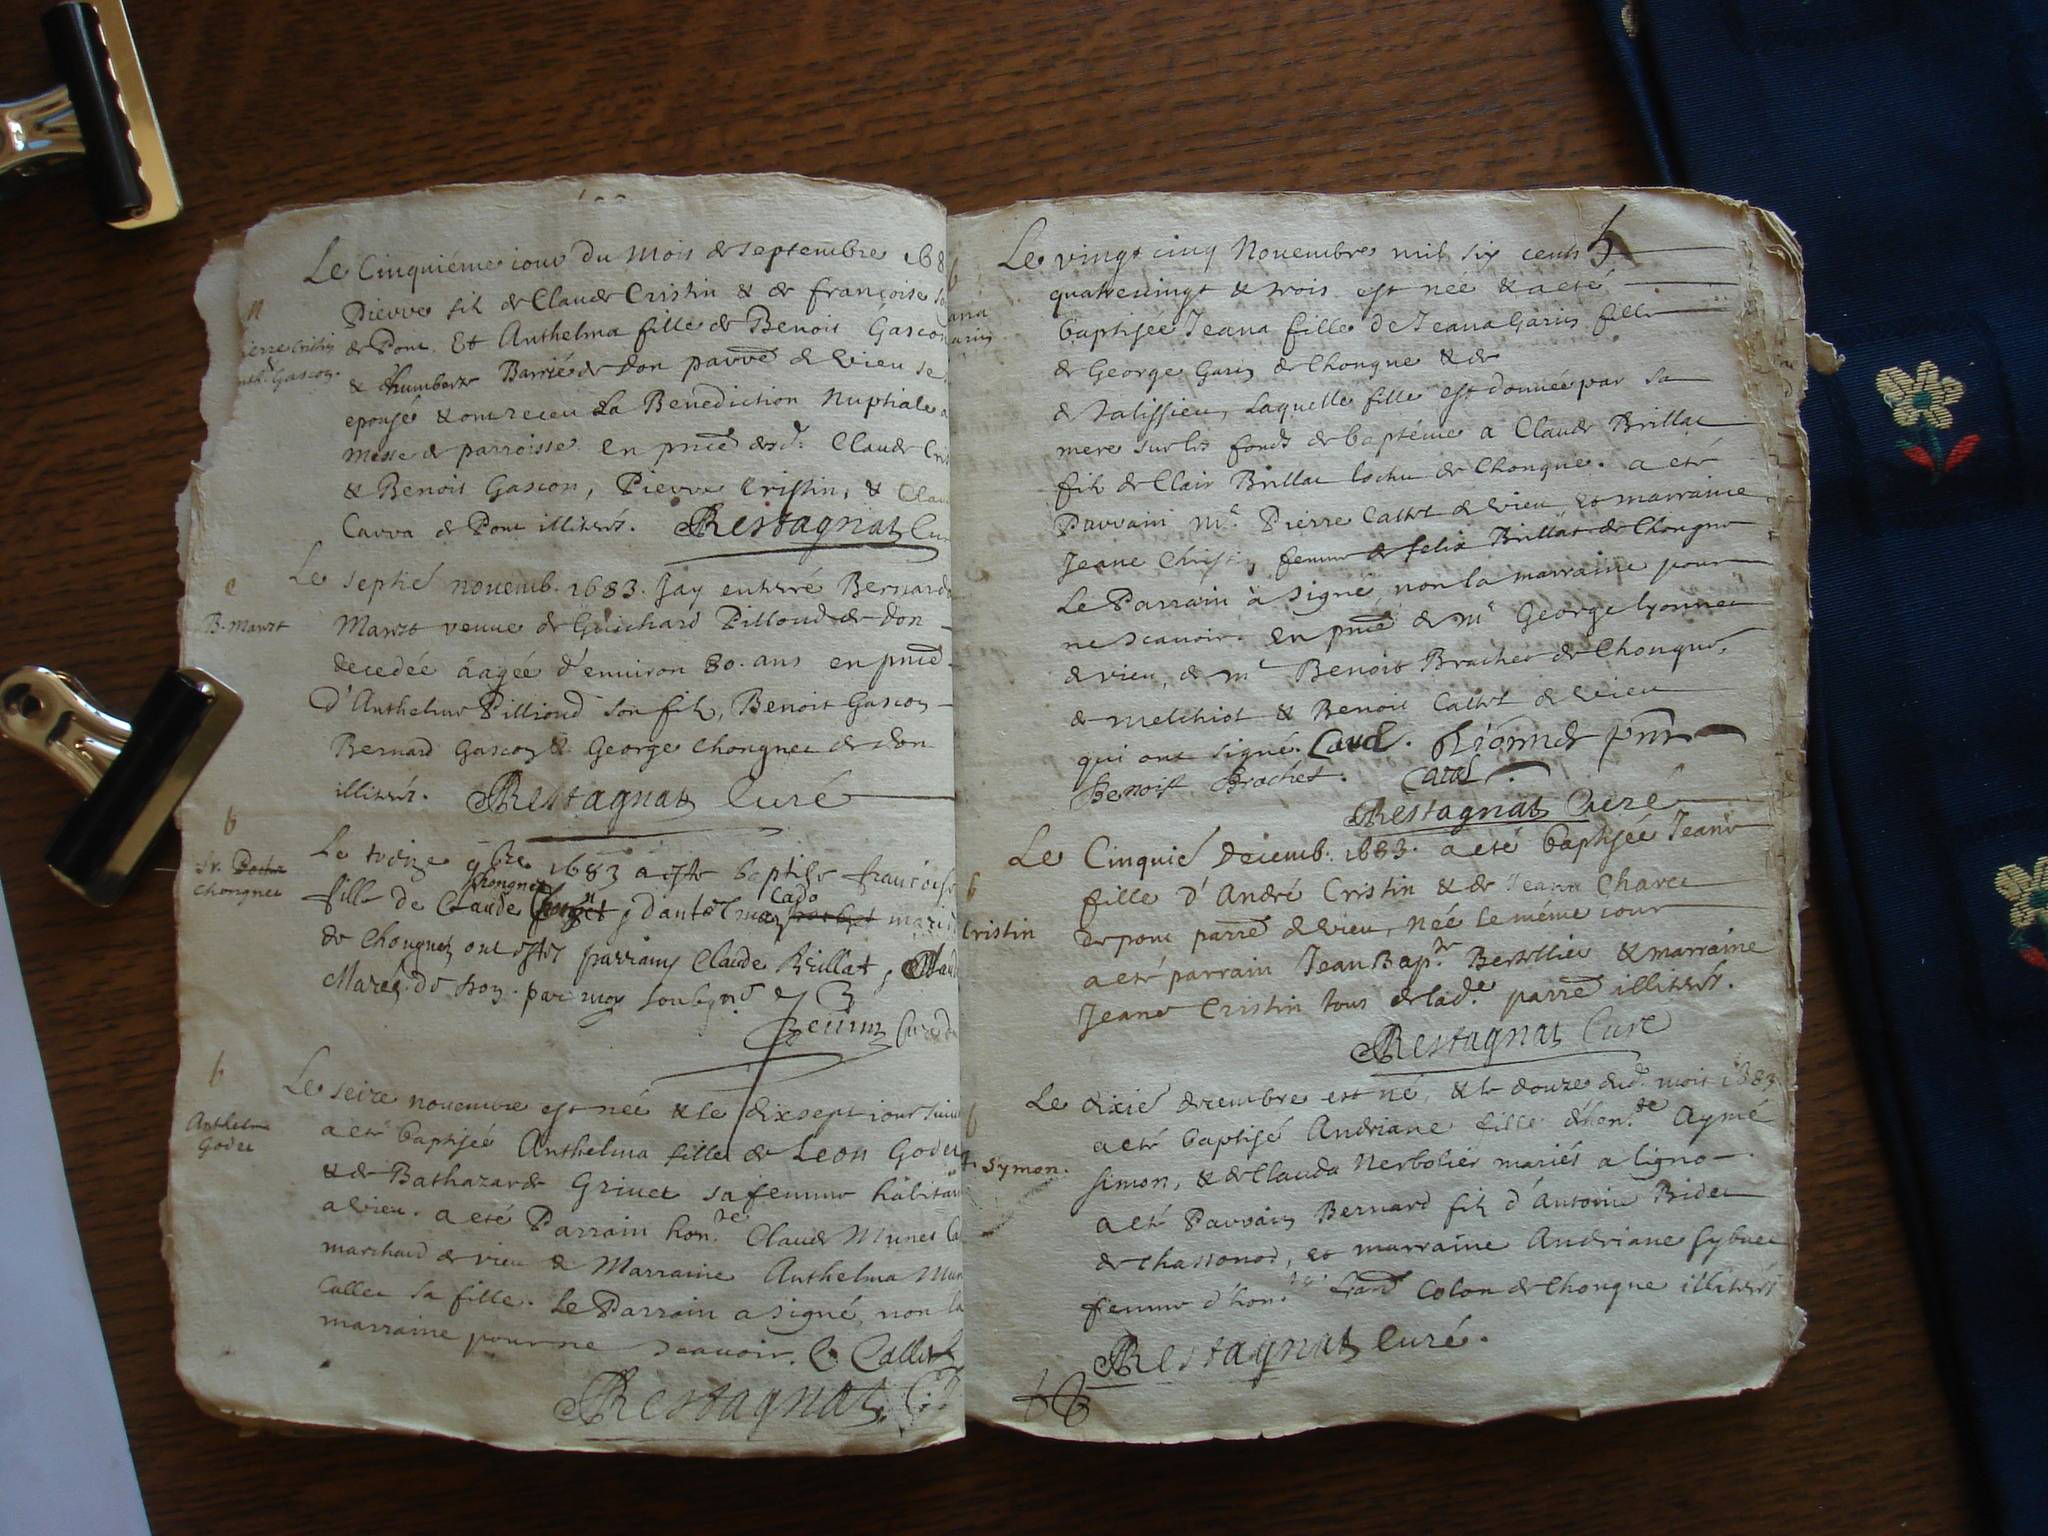 Le Cinquiéme iour du Mois de septembre 168
Pierre fils de Claude Cristin & de françoise
de Pont. Et Anthelma fille de Benoit Gascon
& d'humberte Barrié de don parré de vieu se
epousé & ont receu La Benediction Nuptiale a
messe de parroisse. En pnce desd. Claude Cris
& Benoit Gascon, Pierre Cristin, & Clau
Carra de Pont illiterés. Restagnat Cu
n
ierre Cristin
nth. Gascon.
Le septié novemb. 1683. Jay enterré Bernarde
Maret veuve de Guichard Pilloud de don
decedée aagée d'environ 80. ans en pnce
D'Anthelme Pilliond son fils, Benoit Gascon
Bernard Gascon & George Chongnet de don
illiterés. Restagnat Curé
e
B. Maret
b
Le treize 9bre 1683 a este baptise francoise
fille de Claude Chongnet, d'antelma Cado mariés
de Chongnes ont estes parrains Claude Brillat,
Marez de don. par moy soubsne
Curé de
Chongnet
b
Anthelma
Godet
Le seize novembre est née & le dixsept iour suiva
a eté baptisée Anthelma fille de Leon Godet
& de Bathazarde Grinet sa femme habitan
a vieu. a eté Parrain hon.ble Claude Munet Ca
marchand de vieu & Marraine Anthelma Mun
Callet sa fille. Le Parrain a signé, non la
marraine pour ne scavoir. C Callet
Restagnat C
Le vingt cinq Novembre mil six cents
quatrevingt & trois est née & a eté
baptisée Jeana fille de Jeana Garin fille
de George Garin de Chongne & de
de Talissieu, Laquelle fille est donnée par sa
mere sur les fonds de baptéme a Claude Brillat
fils de Clair Brillat Cochu de Chongne. a eté
Parrain Mr. Pierre Callet de vieu, et marraine
Jeane Christin, femme de felix Brillat de Chongne
Le Parrain à signé, non la marraine pour
ne scavoir. en pnce de Mr George Lyonnet
de vieu, de Mr Benoit Brachet de Chongne,
de Melchiot & Benoit Callet de vieu
qui ont signé. Lionnet pnt
Benoist Brachet.
Restagnat Curé
b
ana
arin
Le Cinquié decemb. 1683. a eté baptisée Jeane
fille d'André Cristin & de Jeana Charet
de pont parré de vieu, née le méme iour
a eté parrain Jean Bap.te Bertollieu & marraine
Jeane Cristin tous de lad.e parré illiterés.
Restagnat Curé
b
Cristin
Le dixié decembre est né, & le douze dud. mois 1683
a eté baptisé Andriane fille d'hon.ble Aymé
Simon, & de Clauda Nerbolier mariés a ligno
a eté Parrain Bernard fils d'Antoine Bidet
de Chassonod, et marraine Andriane Sybuet
femme d'hon.ble Colon de Chongne illiterés
Restagnat Curé.
b
Symon.